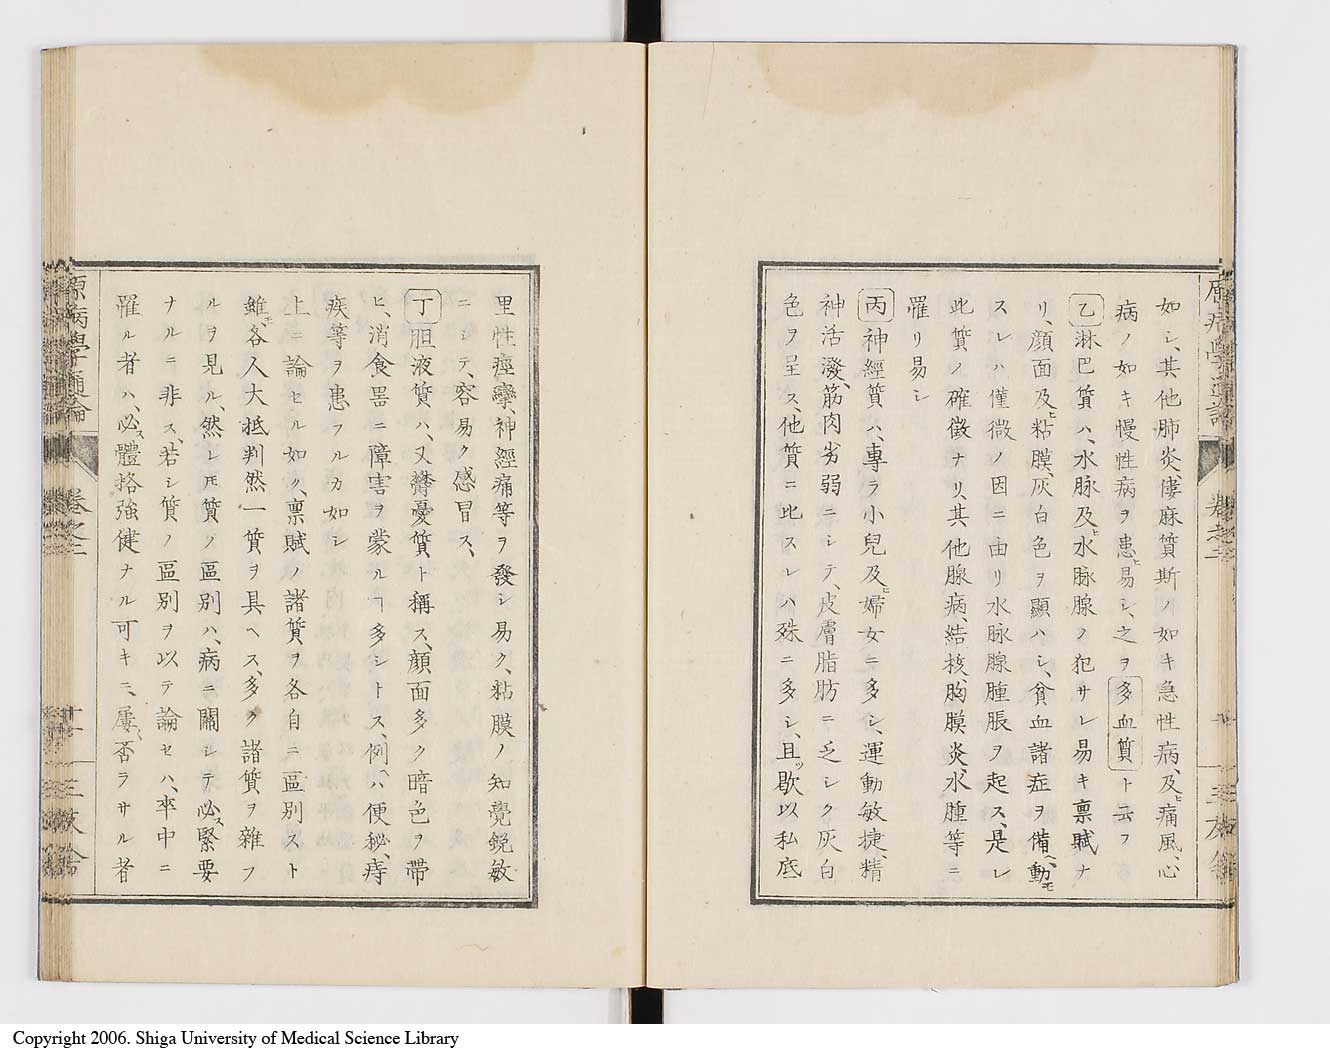 如シ、其他肺炎、僂麻質斯ノ如キ急性病、及ヒ痛風、心
病ノ如キ慢性病ヲ患ヒ易シ、之ヲ多血質ト云フ
乙淋巴質ハ、水脉及ヒ水脉腺ノ犯サレ易キ禀賦ナ
リ、顔面及ヒ粘膜、灰白色ヲ顯ハシ、貧血諸症ヲ備ヘ、動モ
スレハ僅微ノ因ニ由リ水脉腺腫脹ヲ起ス、是レ
此質ノ確徴ナリ、其他腺病、結核胸膜炎、水腫等ニ
罹リ易シ
丙神經質ハ、專ラ小兒及ヒ婦女ニ多シ、運動敏捷、精
神活潑、筋肉劣弱ニシテ、皮膚脂肪ニ乏シク灰白
色ヲ呈ス、他質ニ比スレハ殊ニ多シ、且ツ歇以私底
里性痙攣、神經痛等ヲ發シ易ク、粘膜ノ知覺銳敏
ニシテ、容易ク感冒ス、
丁胆液質ハ、又欝憂質ト稱ス、顔面多ク暗色ヲ帶
ヒ、消食噐ニ障害ヲ蒙ルヿ多シトス、例ヘハ便秘、痔
疾等ヲ患フルカ如シ
上ニ論セル如ク、禀賦ノ諸質ヲ各自ニ區別スト
雖モ、各人大抵判然一質ヲ具ヘス、多ク諸質ヲ雜フ
ルヲ見ル、然レ𪜈質ノ區別ハ、病ニ關シテ必ス緊要
ナルニ非ス、若シ質ノ區別ヲ以テ論セハ、卒中ニ
罹ル者ハ、必ス體格強健ナル可キニ、屢〻否ラサル者
原病學通論
卷之二
三友舎
Copyright 2006. Shiga University of Medical Science Library